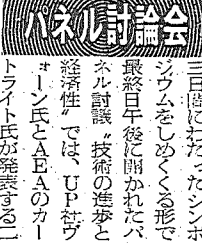 パネル討論会
三日間にわたったシンポ
ジウムをしめくくる形で
最終日午後に開かれたパ
ネル討議〝技術の進歩と
経済性〟では、UP社ヴ
ォーン氏とAEAのカー
トライト氏が発表する二